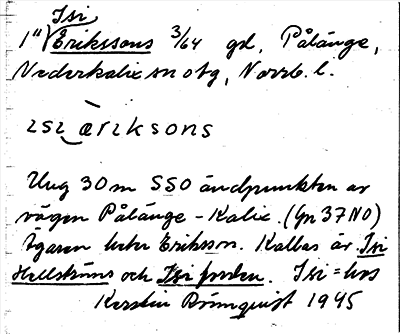 Isi
1") Erikssons 3/64 gd, Pålänge,
Nederkalix sn o tg, Norrb. l.
ɪsɪ æriksons
Ung 30 m SSO ändpunkten av
vägen Pålänge - Kalix. (Gn 37 NO)
Ägaren heter Eriksson. Kallas är Isi
Hellströms och Isi farden. Isi = hos
Kerstin Brömquist 1945